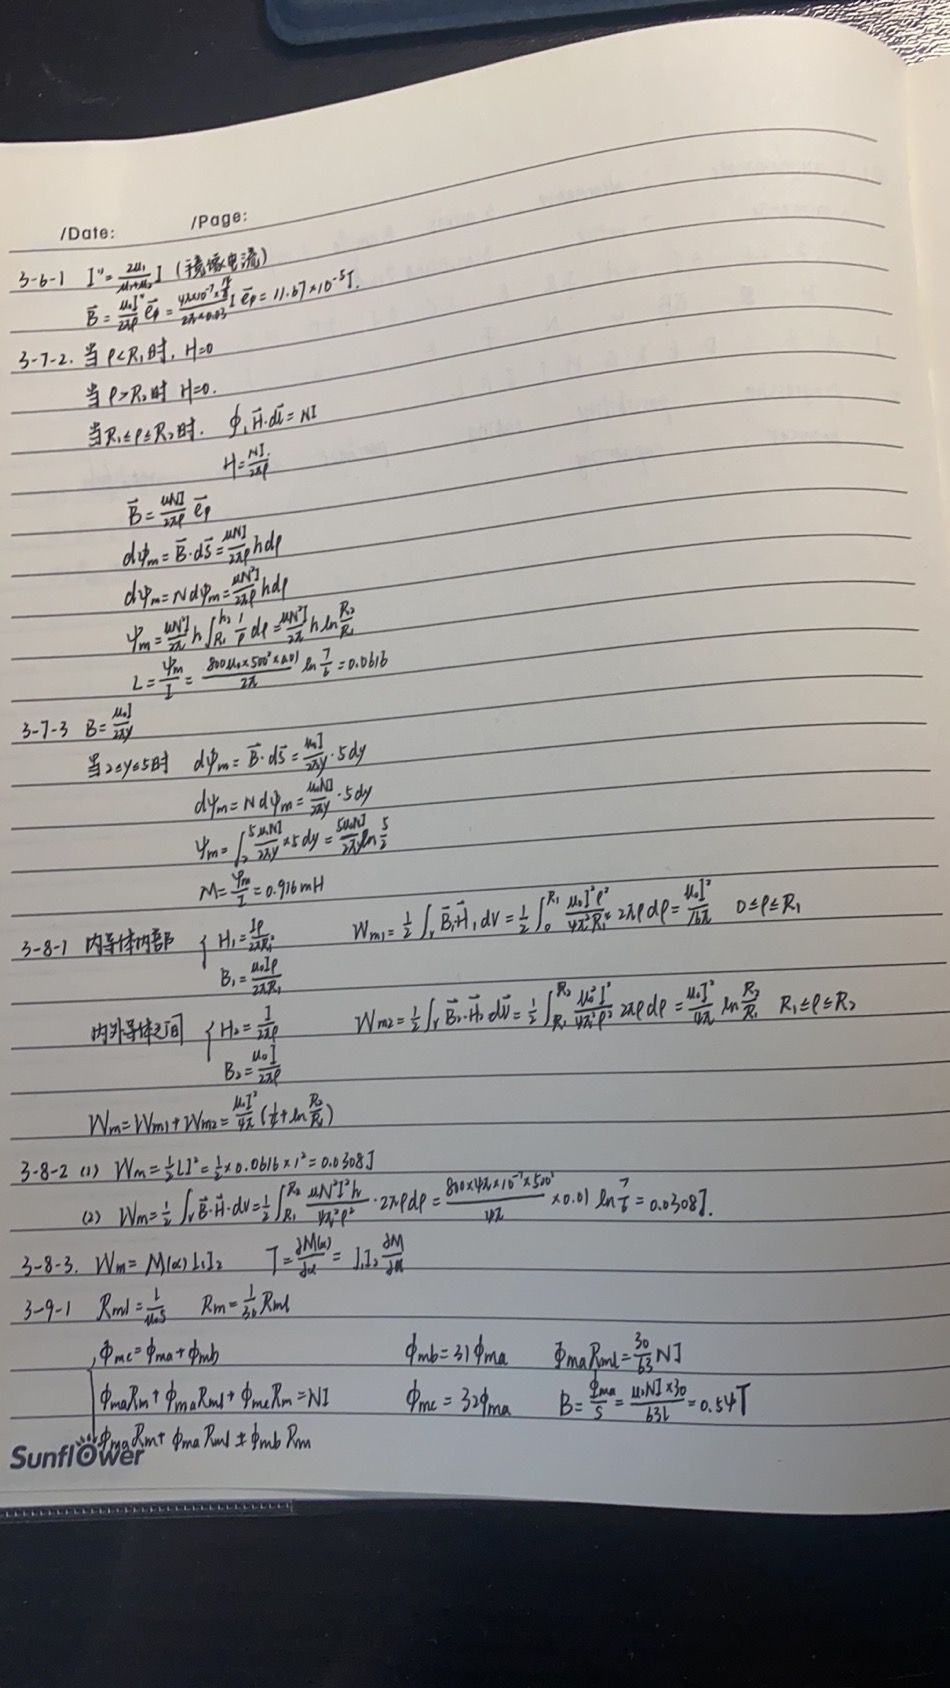 /Date: /Page:
3-6-1 I''=\frac{2μ_1}{μ_1+μ_2}I (镜像电流)
\vec{B}=\frac{μ_0I''}{2πρ}\vec{e_φ}= I\vec{e_φ}=11.67×10^{-5}I.
3-7-2. 当ρ<R_1时, H=0
当ρ>R_2时 H=0.
当R_1≤ρ≤R_2时. ∮_l\vec{H}·d\vec{l}=NI
H=\frac{NI}{2πρ}
\vec{B}=\frac{μNI}{2πρ}\vec{e_φ}
dφ_m=\vec{B}·d\vec{S}=\frac{μNI}{2πρ}hdρ
dψ_m=Ndφ_m=\frac{μN^2I}{2πρ}hdρ
ψ_m=\frac{μN^2I}{2π}h∫_{R_1}^{R_2}\frac{1}{ρ}dρ=\frac{μN^2I}{2π}hln\frac{R_2}{R_1}
L=\frac{ψ_m}{I}=\frac{800μ_0×500^2×0.01}{2π}ln\frac{7}{6}=0.0616
3-7-3 B=\frac{μ_0I}{2πy}
当2≤y≤5时 dφ_m=\vec{B}·d\vec{S}=\frac{μ_0I}{2πy}·5dy
dψ_m=Ndφ_m=\frac{μ_0NI}{2πy}·5dy
ψ_m=∫_2^5\frac{μ_0NI}{2πy}×5dy=\frac{5μ_0NI}{2πy}ln\frac{5}{2}
M=\frac{ψ_m}{I}=0.916mH
3-8-1 内导体内部 { H_1= W_{m1}=\frac{1}{2}∫_v\vec{B_1}\vec{H_1}dV=\frac{1}{2}∫_0^{R_1}\frac{μ_0I^2ρ^2}{4π^2R_1^4}2πρdρ=\frac{μ_0I^2}{16π} 0≤ρ≤R_1
B_1=
内外导体之间 { H_2=\frac{I}{2πρ} W_{m2}=\frac{1}{2}∫_v\vec{B_2}·\vec{H_2}d\vec{V}=\frac{1}{2}∫_{R_1}^{R_2}\frac{μ_0I^2}{4π^2ρ^2}2πρdρ=\frac{μ_0I^2}{4π}ln\frac{R_2}{R_1} R_1≤ρ≤R_2
B_2=\frac{μ_0I}{2πρ}
W_m=W_{m1}+W_{m2}=\frac{μ_0I^2}{4π}(\frac{1}{4}+ln\frac{R_2}{R_1})
3-8-2 (1) W_m=\frac{1}{2}LI^2=\frac{1}{2}×0.0616×1^2=0.0308J
(2) W_m=\frac{1}{2}∫_v\vec{B}·\vec{H}·dV=\frac{1}{2}∫_{R_1}^{R_2}\frac{μN^2I^2h}{4π^2ρ^2}·2πρdρ=\frac{800×4π×10^{-7}×500^2}{4π}×0.01 ln\frac{7}{6}=0.0308J.
3-8-3. W_m=M(α)I_1I_2 T= =I_1I_2\frac{∂M}{∂α}
3-9-1 R_{ml}=\frac{l}{μ_0S} R_m=\frac{1}{30}R_{ml}
φ_{mc}=φ_{ma}+φ_{mb} φ_{mb}=31φ_{ma} φ_{ma}R_{ml}=\frac{30}{63}NI
φ_{ma}R_m+φ_{ma}R_{ml}+φ_{mc}R_m=NI φ_{mc}=32φ_{ma} B=\frac{φ_{ma}}{S}=\frac{μ_0NI×30}{63l}=0.54T
φ_{ma}R_m+φ_{ma}R_{ml}=φ_{mb}R_m
Sunflower